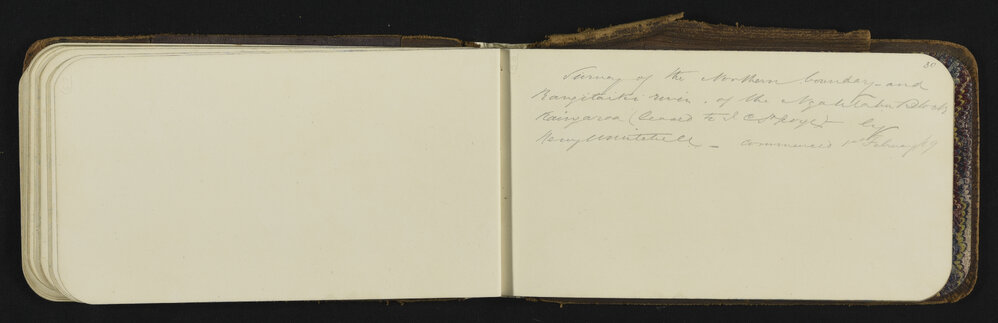 30
Survey of the Northern boundary and
Rangitaiki river, of the Block
Kaingaroa (leased to by
Henry Mitchell - commenced 1st February /69